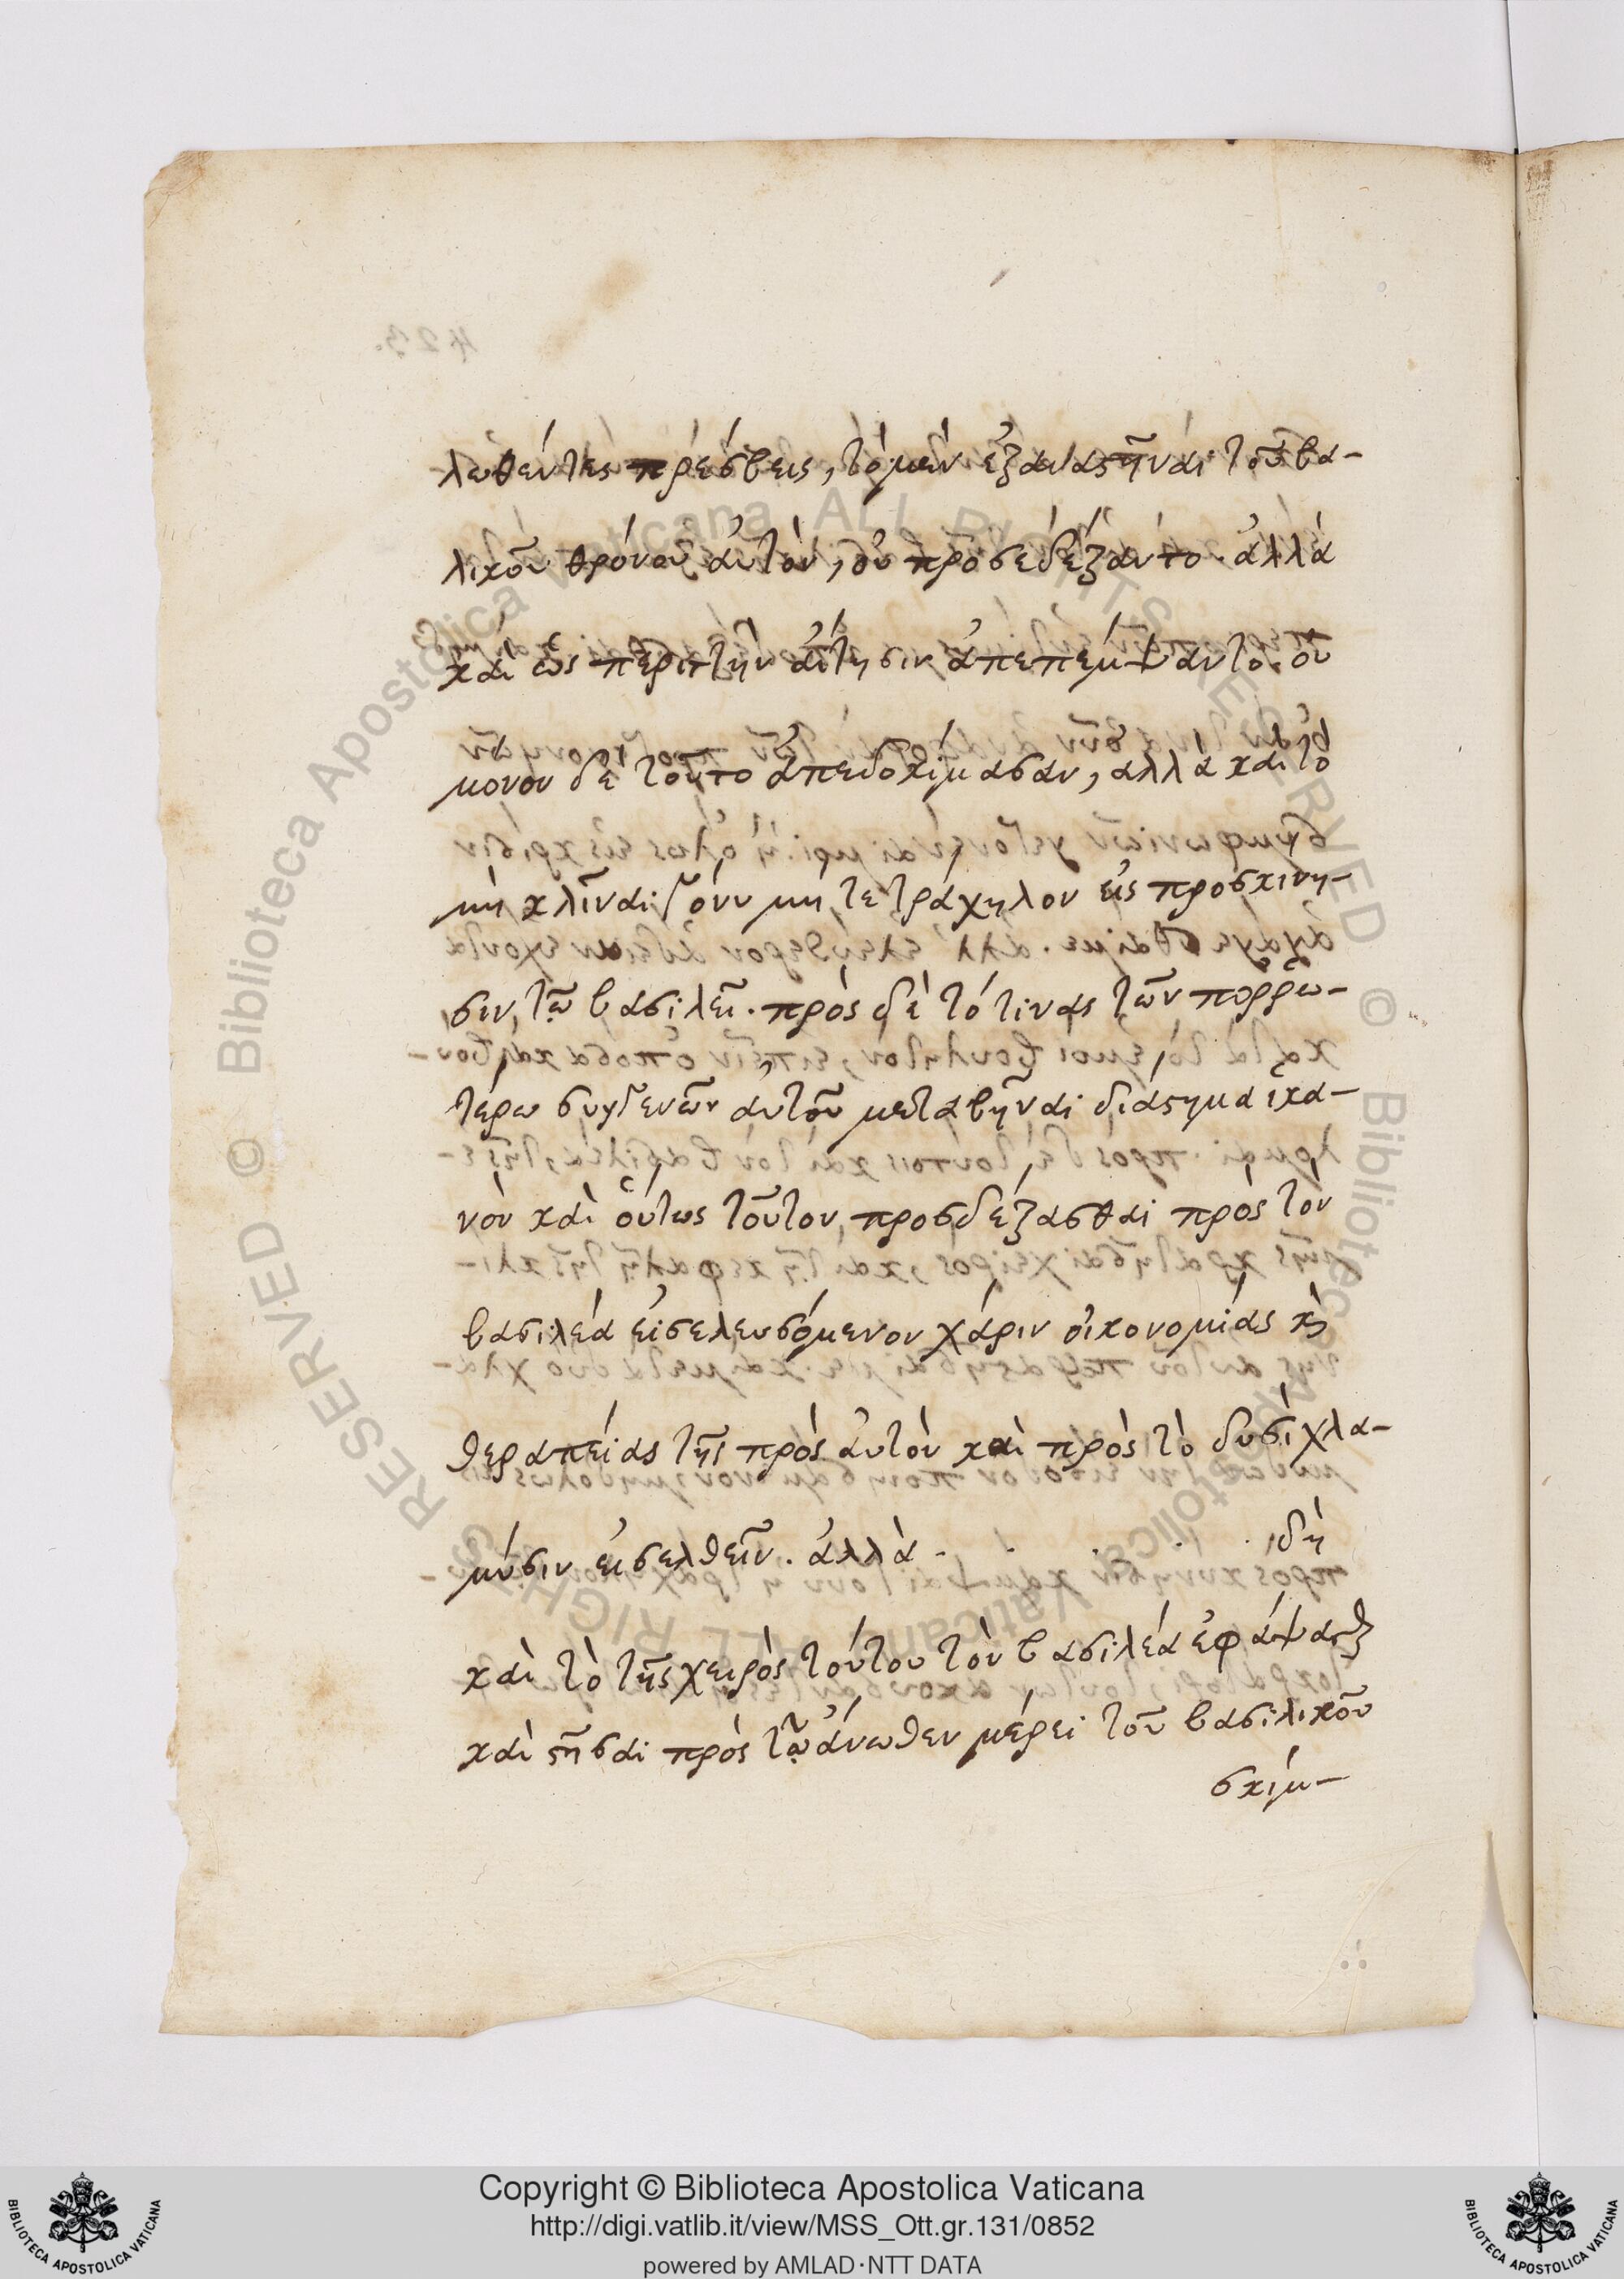 λωθέντες πρέσβεις, τὸ μὲν ἐξαναστῆναι τοῦ βα-
λικοῦ θρόνου αὐτὸν, οὐ προσεδέξαντο. ἀλλὰ
καὶ ὡς περιττὴν αἴτησιν ἀπεπέμψαντο. οὐ
μονον δὲ τοῦτο ἀπεδοκίμασαν, αλλὰ καὶ τὸ
μὴ κλῖναι γόνυ μη τε τράχηλον εἰς προσκινη-
σιν τῷ βασιλεῖ. πρὸς δὲ τό τινας τῶν πορρω-
τέρω συγγενῶν αὐτοῦ μεταβῆναι διάστημα ἱκα-
νὸν καὶ οὕτως τοῦτον προσδέξασθαι πρὸς τὸν
βασιλέα εἰσελευσόμενον χάριν οἰκονομίας κὶ
θεραπείας τῆς πρὸς αὐτὸν καὶ πρὸς τὸ δυσὶ χλα-
μύσιν εἰσελθεῖν. ἀλλὰ . . . . . ιδὴ
καὶ τὸ τῆς χειρὸς τούτου τὸν βασιλέα ἐφάψασθ
καὶ στῆσαι πρὸς τῷ ἄνωθεν μέρει τοῦ βασιλικοῦ
σκίμ-
Copyright © Biblioteca Apostolica Vaticana
http://digi.vatlib.it/view/MSS_Ott.gr.131/0852
powered by AMLAD·NTT DATA
BIBLIOTECA APOSTOLICA VATICANA
BIBLIOTECA APOSTOLICA VATICANA